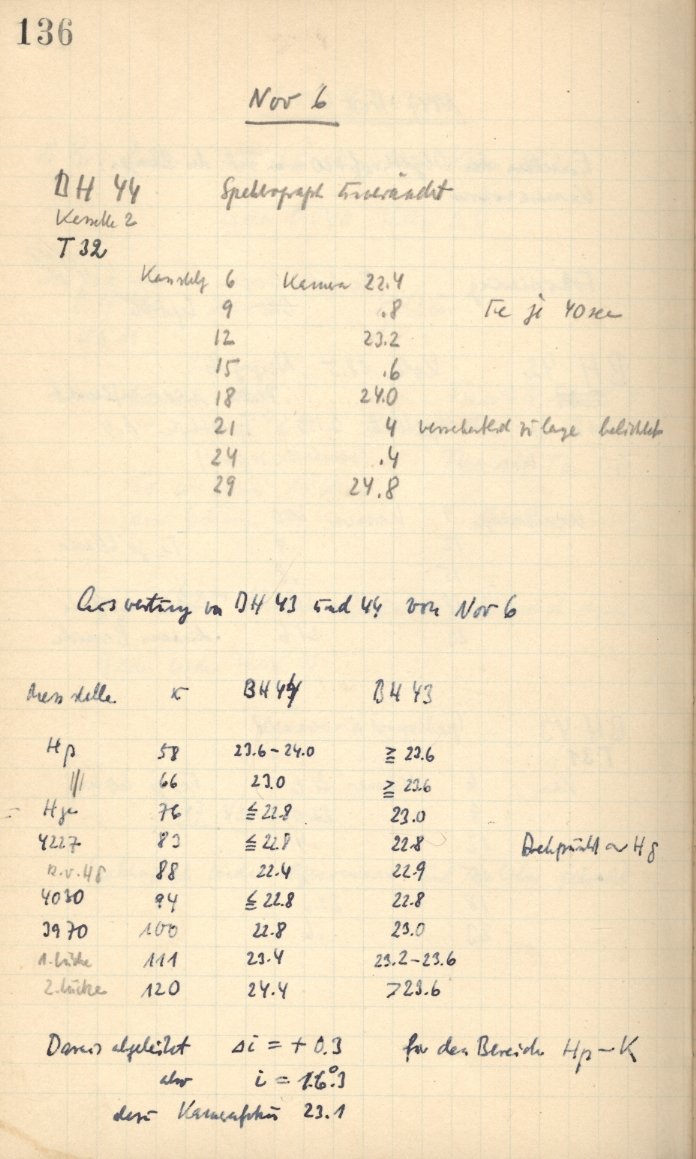 136
Nov 6
BH 44 Spektrograph unverändert
Kassette 2
T 32
6 Kamera 22.4
9 .8 Te je 40 sec
12 23.2
15 .6
18 24.0
21 4 versehentlich zu lange belichtet
24 .4
29 24.8
Auswertung von BH 43 und 44 von Nov 6
Messstelle K BH 44 BH 43
Hβ 58 23.6–24.0 ≧ 23.6
||| 66 23.0 ≧ 23.6
Hγ 76 ≦ 22.8 23.0
4227 83 ≦ 22.8 22.8 Drehpunkt ~ Hδ
n.v. Hδ 88 22.4 22.9
4030 94 ≦ 22.8 22.8
3970 100 22.8 23.0
1. Lücke 111 23.4 23.2–23.6
2. Lücke 120 24.4 >23.6
Daraus abgeleitet Δi = + 0.3 für den Bereich Hβ – K
also i = 16°.3
dazu Kamerafokus 23.1